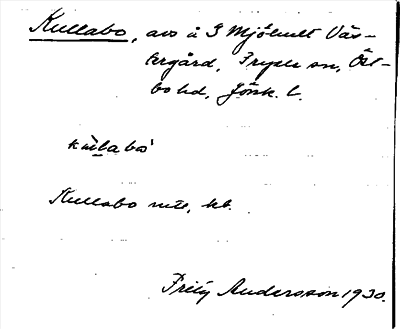 Kullabo, avs å S Mjöhult Väs-
tergård, Fryele sn, Öst-
bo hd, Jönk. l.
kùl̄abo'
Kullabo rute, kb.
Fritz Andersson 1930.